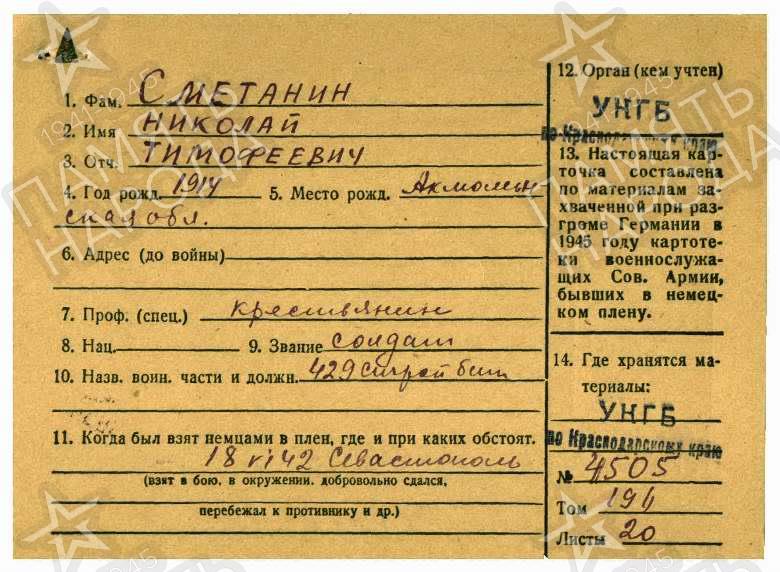 1. Фам. СМЕТАНИН
2. Имя НИКОЛАЙ
3. Отч. ТИМОФЕЕВИЧ
4. Год рожд. 1914 5. Место рожд. Акмолин
ская обл.
6. Адрес (до войны)
7. Проф. (спец.) крестьянин
8. Нац. 9. Звание солдат
10. Назв. воин. части и должн. 429 строй бат
11. Когда был взят немцами в плен, где и при каких обстоят.
18 VI 42 Севастополь
(взят в бою, в окружении, добровольно сдался,
перебежал к противнику и др.)
12. Орган (кем учтен)
УНГБ
по Краснодарскому краю
13. Настоящая кар-
точка составлена
по материалам за-
хваченной при раз-
громе Германии в
1945 году картоте-
ки военнослужа-
щих Сов. Армии,
бывших в немец-
ком плену.
14. Где хранятся ма-
териалы:
УНГБ
по Краснодарскому краю
№ 4505
Том 194
Листы 20
ПАМЯТЬ
НАРОДА
1941-1945